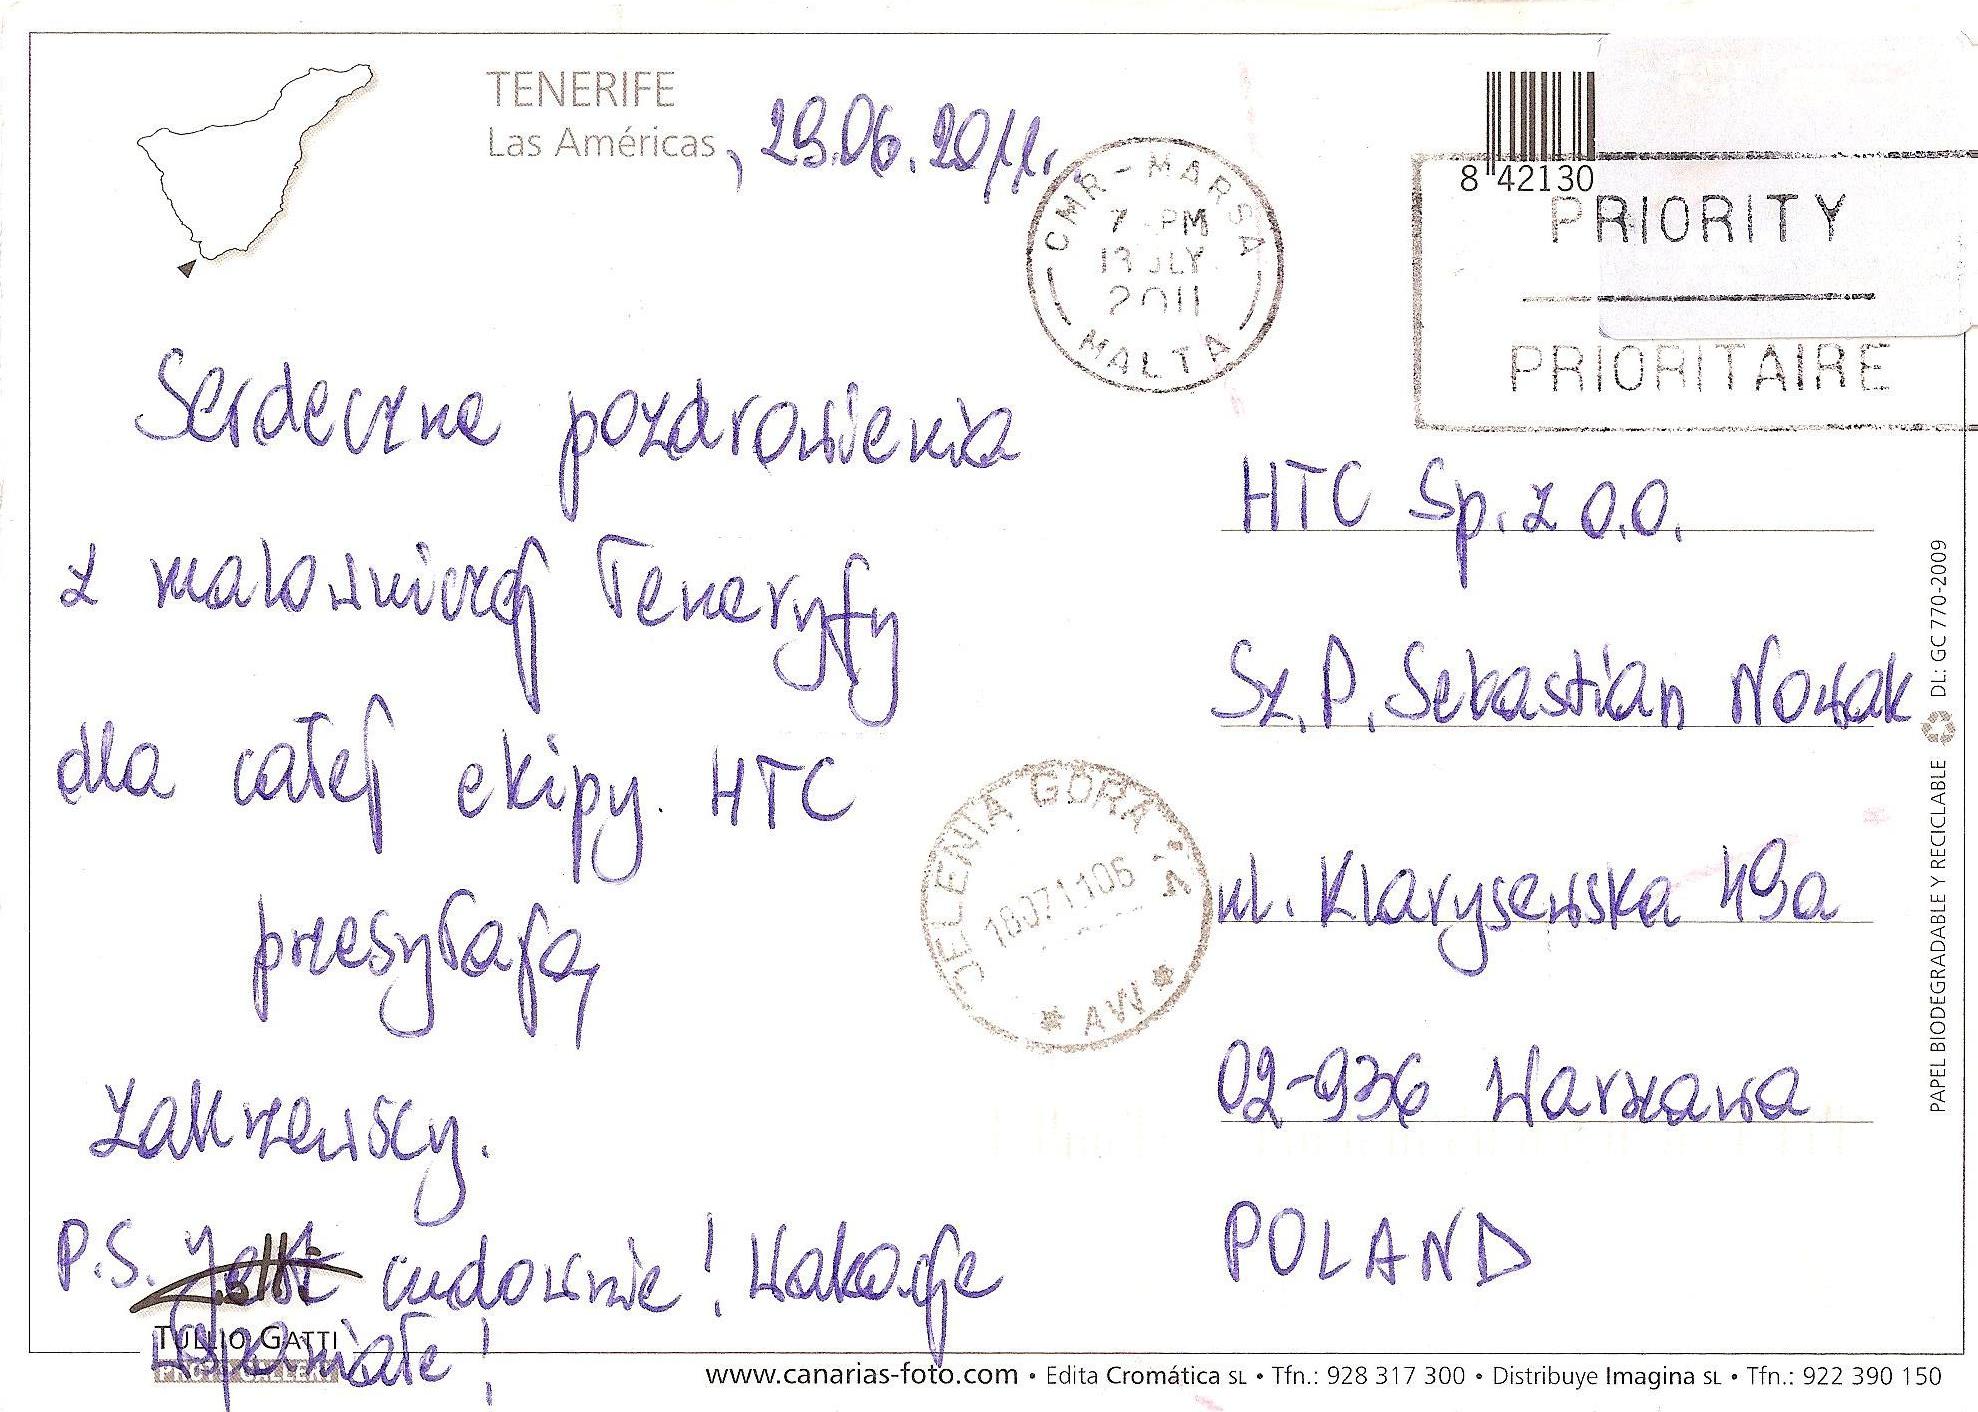 TENERIFE
Las Américas, 29.06.2011r.
8 42130
CMR-MARSA
7 PM
13 JLY
2011
MALTA
PRIORITY
PRIORITAIRE
Serdeczne pozdrowienia
z malowniczej Teneryfy
dla całej ekipy HTC
przesyłają
Zakrzewscy.
P.S. Jest cudownie! Wakacje
wspaniałe!
HTC Sp. z o.o.
Sz.P. Sebastian Nowak
ul. Klarysewska 49a
02-936 Warszawa
POLAND
JELENIA GÓRA
18071106
* AW *
TULLIO GATTI
PHOTO GALLERY
www.canarias-foto.com • Edita Cromática SL • Tfn.: 928 317 300 • Distribuye Imagina SL • Tfn.: 922 390 150
PAPEL BIODEGRADABLE Y RECICLABLE DL.: GC 770-2009